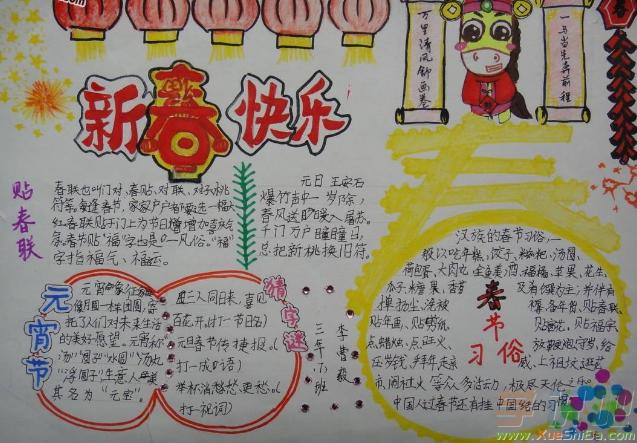 新春快乐
万里清风锦画卷
一马当先奔前程
贴春联
春联也叫门对、春贴、对联、对子、桃
符等。每逢春节，家家户户都要选一幅大
红春联贴于门上，为节日增加喜庆气
氛。春节贴“福”字也是
字指福气、福运。
元日 王安石
爆竹声中一岁除，
春风送暖入屠苏。
千门万户曈曈日，
总把新桃换旧符。
元宵节
元宵象征
像月圆一样团圆，寄
托了人们对未来生活
的美好愿望。元宵称
汤“圆子”“水圆”“汤丸”
“浮圆子”，生意人
其名为“元宝”。
猜字谜
三人同日来，喜见
百花开。(打一节日名)
元旦春节传捷报。(
打一成语)
举杯消愁愁更愁。(
打一祝词)
三年(5)班
李常毅
春
春节习俗
汉族的春节习俗，一
般以吃年糕、饺子、糍粑、汤圆、
荷包蛋、大肉丸、全鱼、美酒、福橘、苹果、花生、
瓜子、糖果、香茗
掸扬尘、洗被
贴年画、贴剪纸、
点蜡烛、点旺火、
压岁钱、拜年、走亲
备年货、贴春联、
贴福字、
放鞭炮、守岁、给
戚、上祖坟、逛花
市、闹社火等众多活动，极尽天伦之乐。
中国人过春节还有挂中国结的习惯。
学习吧
www.XueShiBa.com